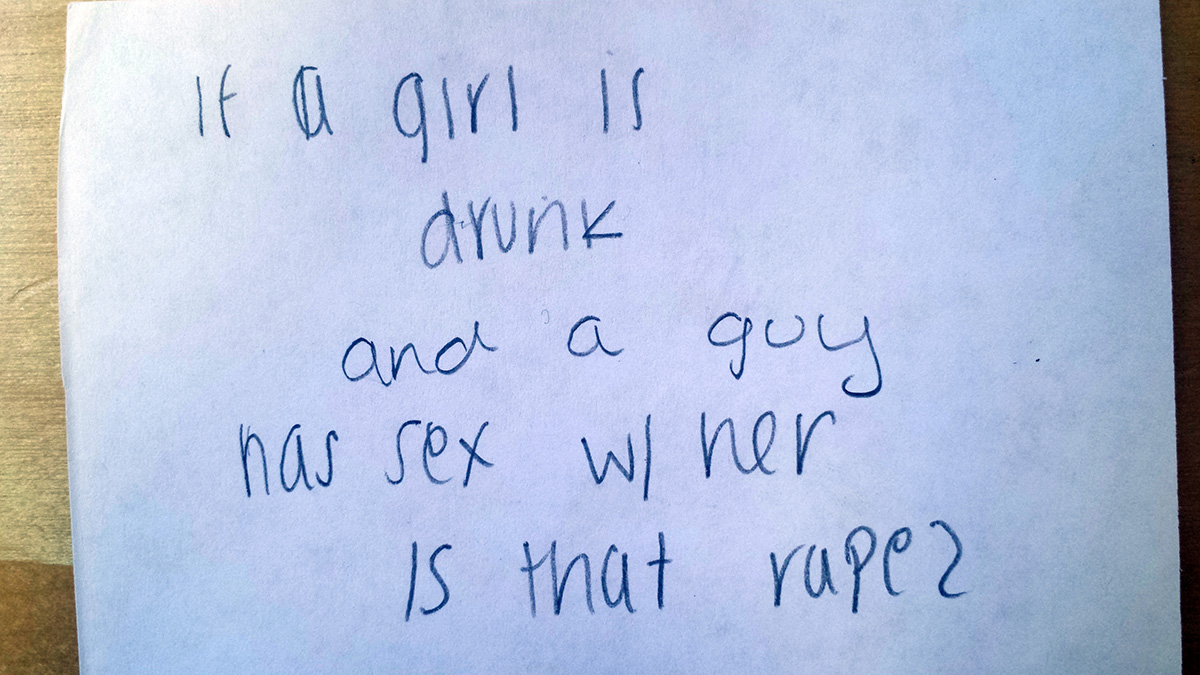 If a girl is
drunk
and a guy
has sex w/ her
Is that rape?